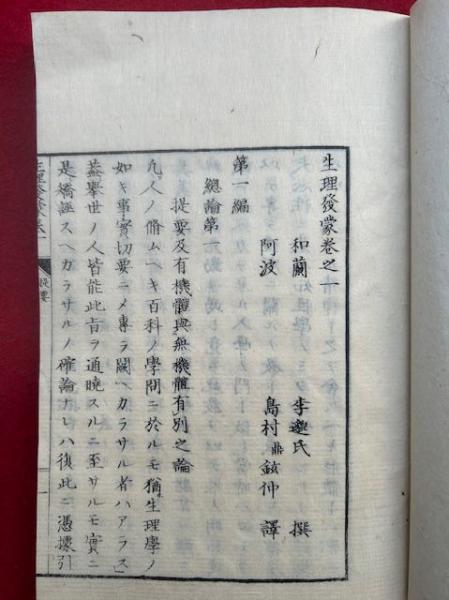 生理發蒙卷之一
和蘭 李邊氏 撰
阿波 島村鼎鉉仲 譯
第一編
總論第一
提要及有機體與無機體有別之論
凡人ノ脩ムヘキ百科ノ學問ニ於ルモ猶生理學ノ
如キ事實切要ニメ專ラ闕ヘカラサル者ハアラス
蓋擧世ノ人皆能此旨ヲ通曉スルニ至サルモ實ニ
是矯誣スヘカラサルノ確論ナレハ復此ニ憑據引
生理發蒙卷一
提要
一